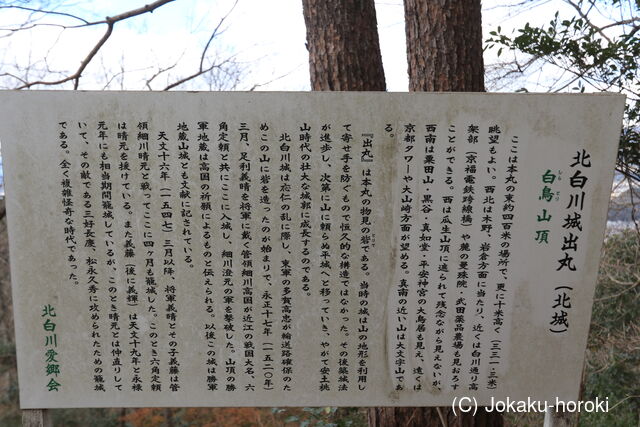 北白川城出丸(北城)
白鳥山頂
しら とり
ここは本丸の東約四百米の場所で、更に十米高く(三三一・三米)
眺望もよい。西北は木野、岩倉方面に当たり、近くは白川通り高
架部(京福電鉄跨線橋)や麓の曼殊院・武田薬品農場も見おろす
ことができる。西は瓜生山頂に遮られて残念ながら見えないが、
西南は粟田山・黒谷・真如堂・平安神宮の大鳥居も見え、遠くは
京都タワーや大山崎方面が望める。真南の近い山は大文字山であ
る。
『出丸』は本丸の物見の砦である。当時の城は山の地形を利用し
て寄せ手を防ぐもので恒久的な構造ではなかった。その後築城法
が進歩し、次第に山に頼らぬ平城へと移っていき、やがて安土桃
山時代の壮大な城郭に成長するのである。
北白川城は応仁の乱に際し、東軍の多賀高忠が輸送路確保のた
めこの山に砦を造ったのが始まりで、永正十七年(一五二〇)
三月、足利義晴を将軍に戴く管領細川高国が近江の戦国大名、六
角定頼と共にここに入城し、細川澄元の軍を撃破した。山頂の勝
軍地蔵は高国の祈願によるものと伝えられる。以後この城は勝軍
地蔵山城とも文献に記されている。
天文十六年(一五四七)三月以降、将軍義晴とその子義藤は管
領細川晴元と戦ってここに四ヶ月も籠城した。このとき六角定頼
は晴元を援けている。また義藤(後に義輝)は天文十九年と永禄
元年にも相当期間籠城しているが、このとき晴元とは仲直りして
いて、その敵である三好長慶、松永久秀に攻められたための籠城
である。全く複雑怪奇な時代であった。
北白川愛郷会
(C) Jokaku-horoki